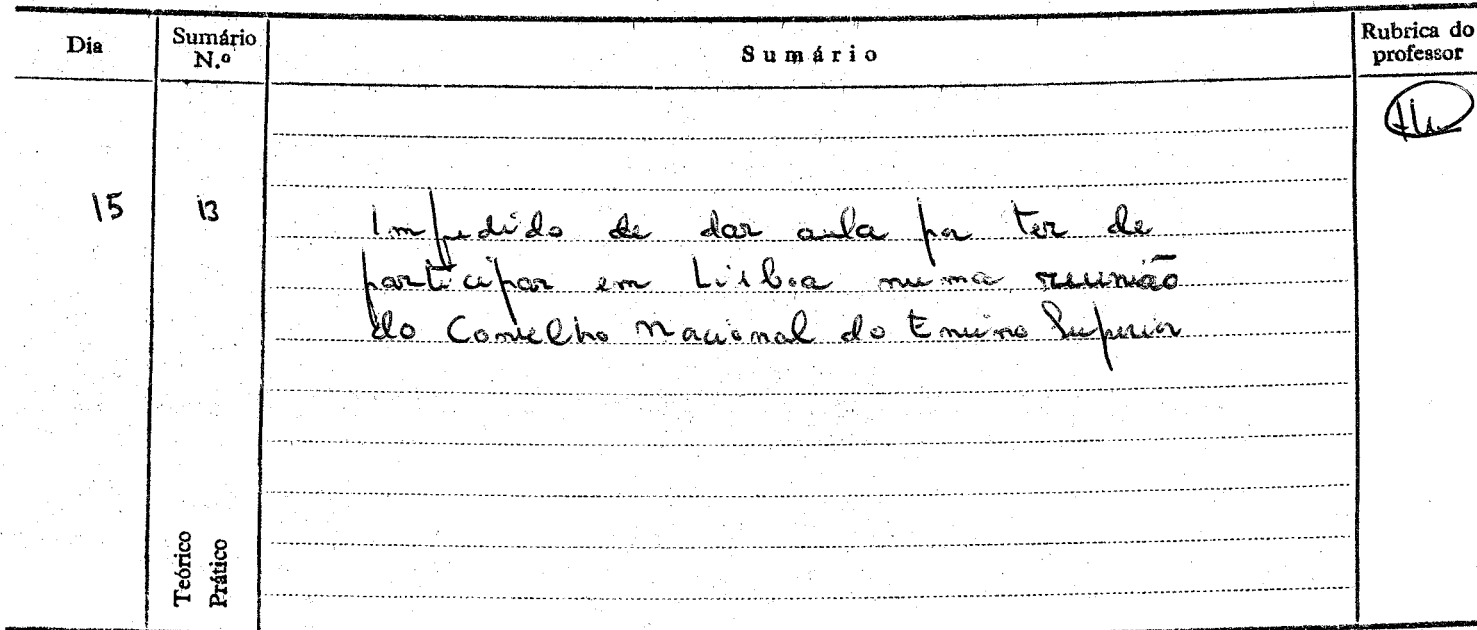 Dia Sumário N.º Sumário Rubrica do professor
15 13 Impedido de dar aula por ter de
participar em Lisboa numa reunião
do Conselho Nacional do Ensino Superior
Teórico
Prático